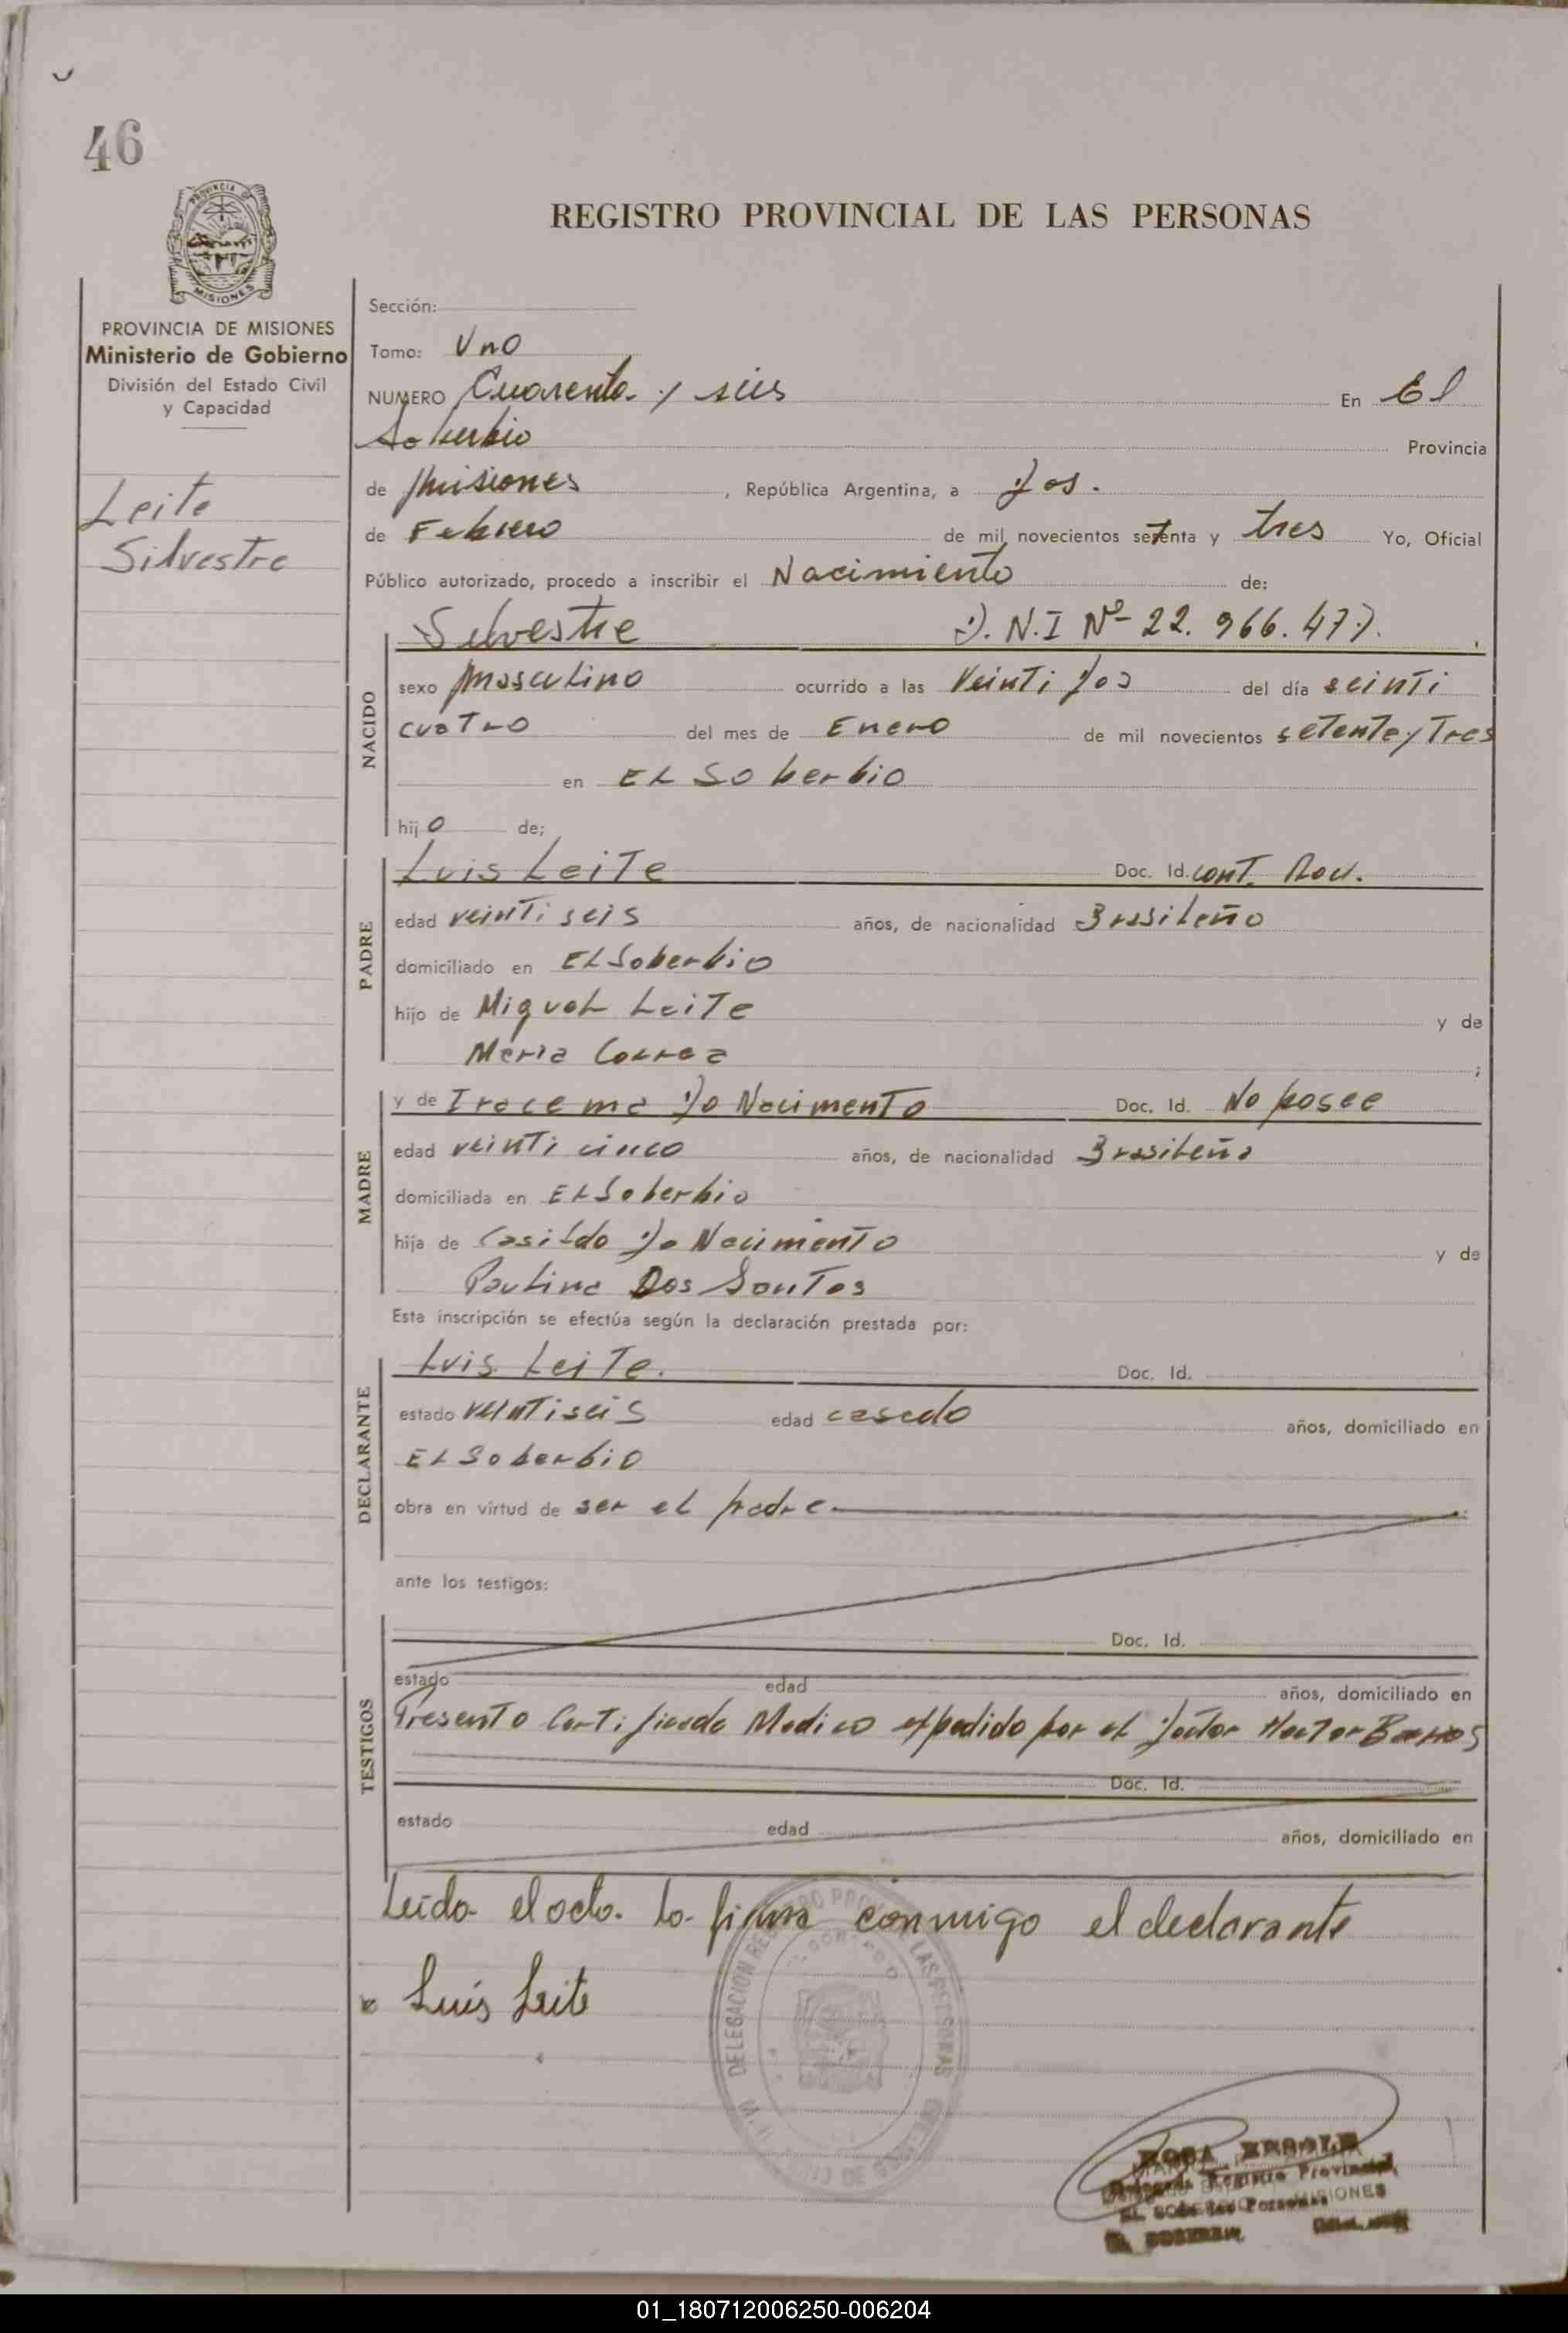 46
PROVINCIA
MISIONES
REGISTRO PROVINCIAL DE LAS PERSONAS
PROVINCIA DE MISIONES
Ministerio de Gobierno
División del Estado Civil
y Capacidad
Leite
Silvestre
Sección:
Tomo: Uno
NUMERO Cuarenta y seis En El
Soberbio Provincia
de Misiones, República Argentina, a dos.
de Febrero de mil novecientos setenta y tres Yo, Oficial
Público autorizado, procedo a inscribir el Nacimiento de:
NACIDO
Silvestre D.N.I Nº 22.966.477.
sexo masculino ocurrido a las Veinti dos del día veinti
cuatro del mes de Enero de mil novecientos setenta y Tres
en EL Soberbio
hijo de;
PADRE
Luis Leite Doc. Id. cont. Rad.
edad veinti seis años, de nacionalidad Brasileño
domiciliado en EL Soberbio
hijo de Miguel Leite y de
Maria Correa ;
MADRE
y de Iracema Do Nacimento Doc. Id. No posee
edad veinti cinco años, de nacionalidad Brasileña
domiciliada en EL Soberbio
hija de Casildo Do Nacimento y de
Paulina Dos Santos
Esta inscripción se efectúa según la declaración prestada por:
DECLARANTE
Luis Leite. Doc. Id.
estado veintiseis edad casado años, domiciliado en
EL Soberbio
obra en virtud de ser el padre.
ante los testigos:
TESTIGOS
Doc. Id.
estado edad años, domiciliado en
Presento Certificado Medico expedido por el doctor Hector Barros
Doc. Id.
estado edad años, domiciliado en
Leída el acta la firma conmigo el declarante
Luis Leite
DELEGACION REGISTRO PROV. DE LAS PERSONAS
01_180712006250-006204